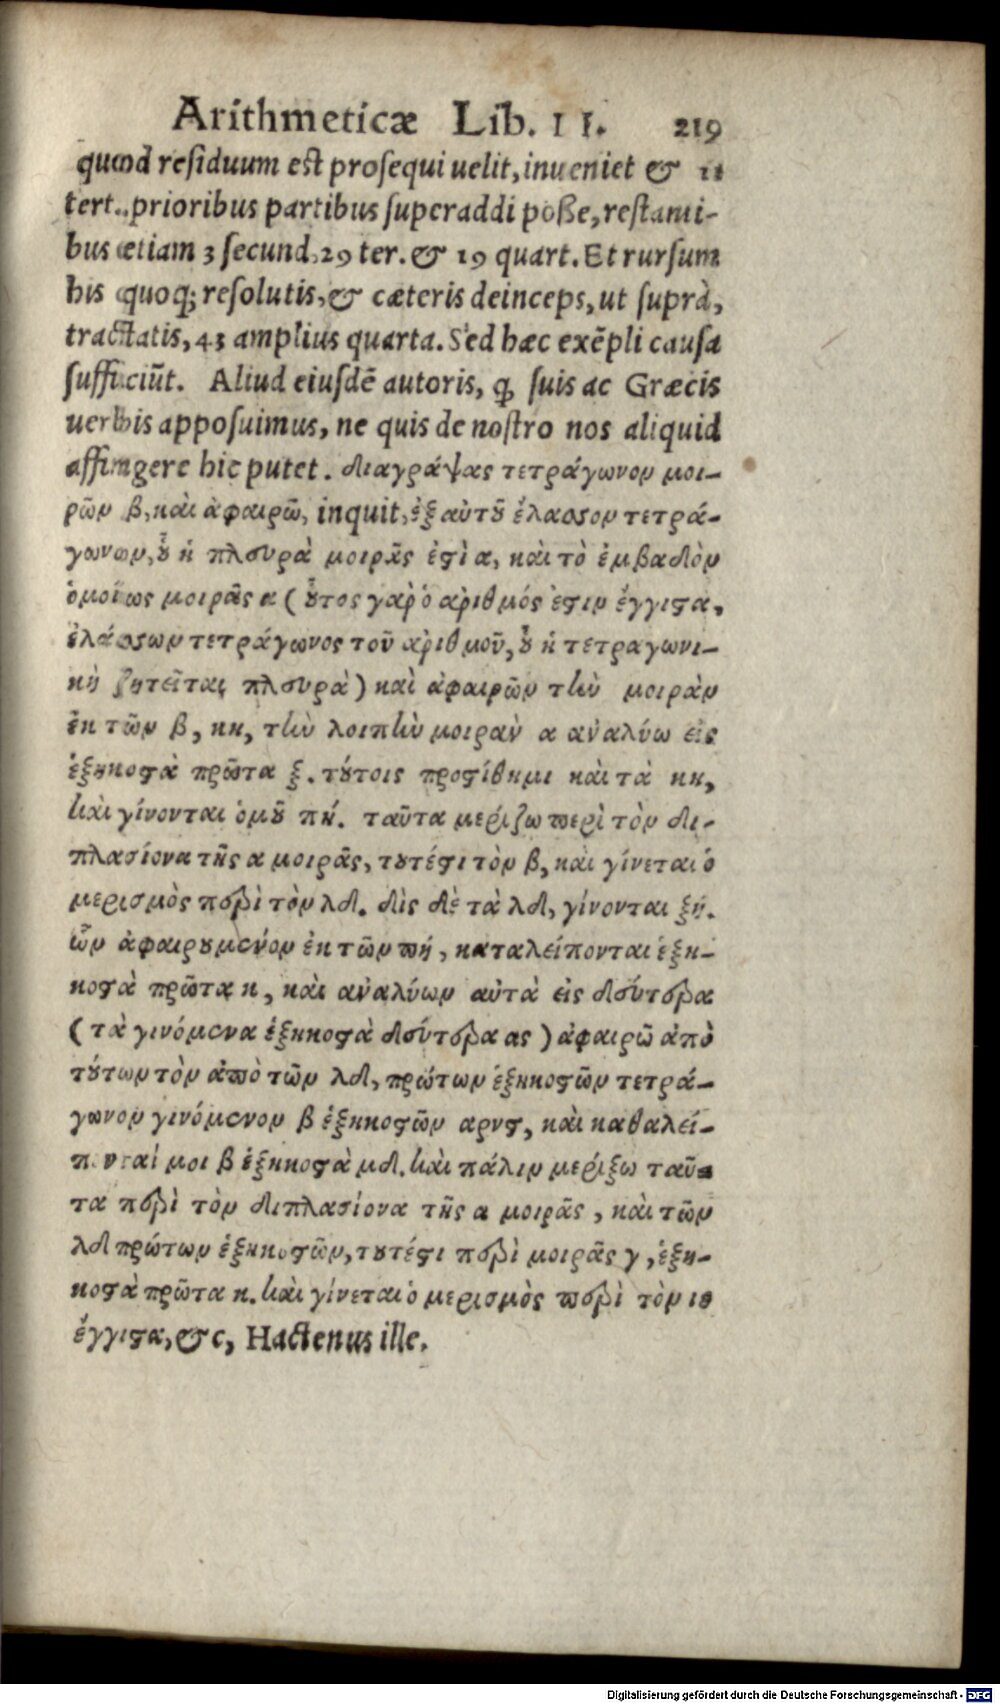 Arithmeticæ Lib. II. 219
quod residuum est prosequi uelit, inueniet & 11
tert. prioribus partibus superaddi poße, restanti-
bus etiam 3 secund. 29 ter. & 19 quart. Et rursum
his quoq; resolutis, & cæteris deinceps, ut suprà,
tractatis, 43 amplius quarta. Sed hæc exẽpli causa
sufficiũt. Aliud eiusdẽ autoris, ꝙ suis ac Græcis
uerbis apposuimus, ne quis de nostro nos aliquid
affingere hic putet. διαγράψας τετράγωνον μοι-
ρῶν β, καὶ ἀφαιρῶ, inquit, ἐξ αὐτȣ͂ ἐλάσσον τετρά-
γωνον, ȣ̔͂ ἡ πλευρὰ μοιρᾶς ἐϛὶ α, καὶ τὸ ἐμβαδὸν
ὁμοίως μοιρᾶς α (ȣ̔͂τος γαρ ὁ ἀριθμός ἐϛιν ἔγγιϛα,
ἐλάσσων τετράγωνος τοῦ ἀριθμοῦ, ȣ̔͂ ἡ τετραγωνι-
κὴ ζητεῖται πλευρὰ) καὶ ἀφαιρῶν τὴν μοιρὰν
ἐκ τῶν β, κη, τὴν λοιπὴν μοιρὰν α ἀναλύω εἰς
ἑξηκοϛὰ πρῶτα ξ. τȣ́τοις προϛίθημι καὶ τὰ κη,
καὶ γίνονται ὁμȣ͂ πή. ταῦτα μερίζω περὶ τὸν δι-
πλασίονα τῆς α μοιρᾶς, τȣτέϛι τὸν β, καὶ γίνεται ὁ
μερισμὸς περὶ τὸν λδ. δὶς δὲ τὰ λδ, γίνονται ξή.
ὧν ἀφαιρȣμένον ἐκ τῶν πή, καταλείπονται ἑξη-
κοϛὰ πρῶτα κ, καὶ ἀναλύων αὐτὰ εἰς δεύτερα
(τὰ γινόμενα ἑξηκοϛὰ δεύτερα ας) ἀφαιρῶ ἀπὸ
τȣ́των τὸν ἀπὸ τῶν λδ, πρώτων ἑξηκοϛῶν τετρά-
γωνον γινόμενον β ἑξηκοϛῶν αρνϛ, καὶ καθαλεί-
πονταί μοι β ἑξηκοϛὰ μδ. καὶ πάλιν μερίξω ταῦ-
τα περὶ τὸν διπλασίονα τῆς α μοιρᾶς, καὶ τῶν
λδ πρώτων ἑξηκοϛῶν, τȣτέϛι περὶ μοιρᾶς γ, ἑξη-
κοϛὰ πρῶτα κ. καὶ γίνεται ὁ μερισμὸς περὶ τὸν ιε
ἔγγιϛα, &c, Hactenus ille.
Digitalisierung gefördert durch die Deutsche Forschungsgemeinschaft - DFG